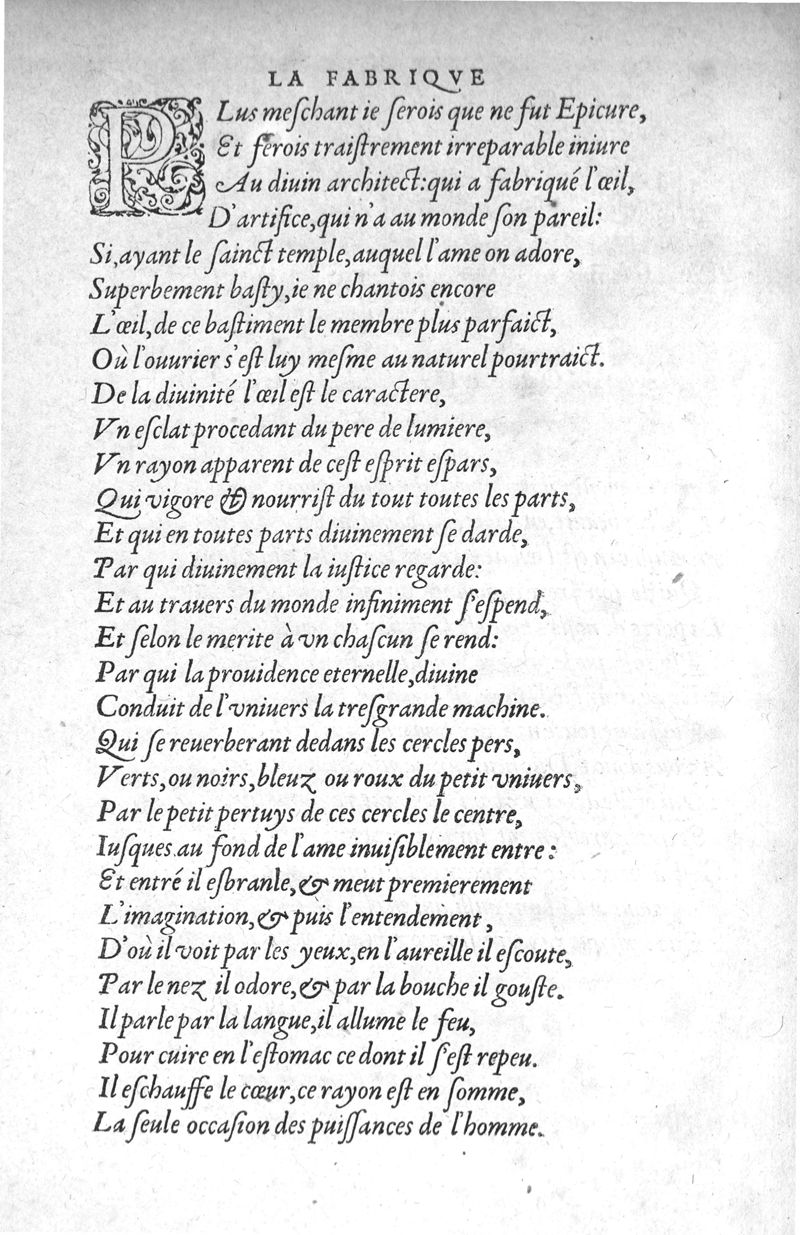 LA FABRIQVE
PLus meſchant ie ſerois que ne fut Epicure,
Et ferois traiſtrement irreparable iniure
Au diuin architect: qui a fabriqué l'œil,
D'artifice, qui n'a au monde ſon pareil:
Si, ayant le ſainct temple, auquel l'ame on adore,
Superbement baſty, ie ne chantois encore
L'œil, de ce baſtiment le membre plus parfaict,
Où l'ouurier s'eſt luy meſme au naturel pourtraict.
De la diuinité l'œil eſt le caractere,
Vn eſclat procedant du pere de lumiere,
Vn rayon apparent de ceſt eſprit eſpars,
Qui vigore & nourriſt du tout toutes les parts,
Et qui en toutes parts diuinement ſe darde,
Par qui diuinement la iuſtice regarde:
Et au trauers du monde infiniment ſ'eſpend,
Et ſelon le merite à vn chaſcun ſe rend:
Par qui la prouidence eternelle, diuine
Conduit de l'vniuers la treſgrande machine.
Qui ſe reuerberant dedans les cercles pers,
Verts, ou noirs, bleuz ou roux du petit vniuers,
Par le petit pertuys de ces cercles le centre,
Iuſques au fond de l'ame inuiſiblement entre:
Et entré il esbranle, & meut premierement
L'imagination, & puis l'entendement,
D'où il voit par les yeux, en l'aureille il eſcoute,
Par le nez il odore, & par la bouche il gouſte.
Il parle par la langue, il allume le feu,
Pour cuire en l'eſtomac ce dont il ſ'eſt repeu.
Il eſchauffe le cœur, ce rayon eſt en ſomme,
La ſeule occaſion des puiſſances de l'homme.